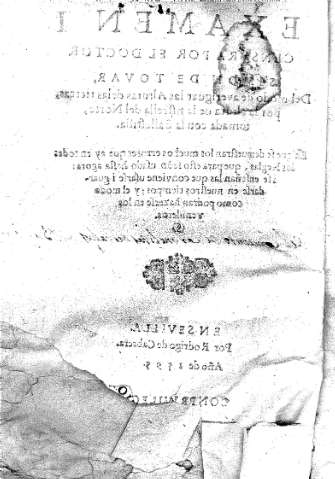 EXAMEN I
CENSURA POR EL DOCTOR
DE TOVAR,
Del modo de averiguar las Alturas de las tierras,
por la altura de la Estrella del Norte,
tomada con la ballestilla.
En que se demuestran los muchos errores que ay en todas
las reglas, que para este se han usado hasta agora:
i se enseñan las que conviene usarse i guar-
darse en nuestros tiempos: y el modo
como podran hazerse en los
venideros.
EN SEVILLA.
Por Rodrigo de Cabrera.
Año de 1595.